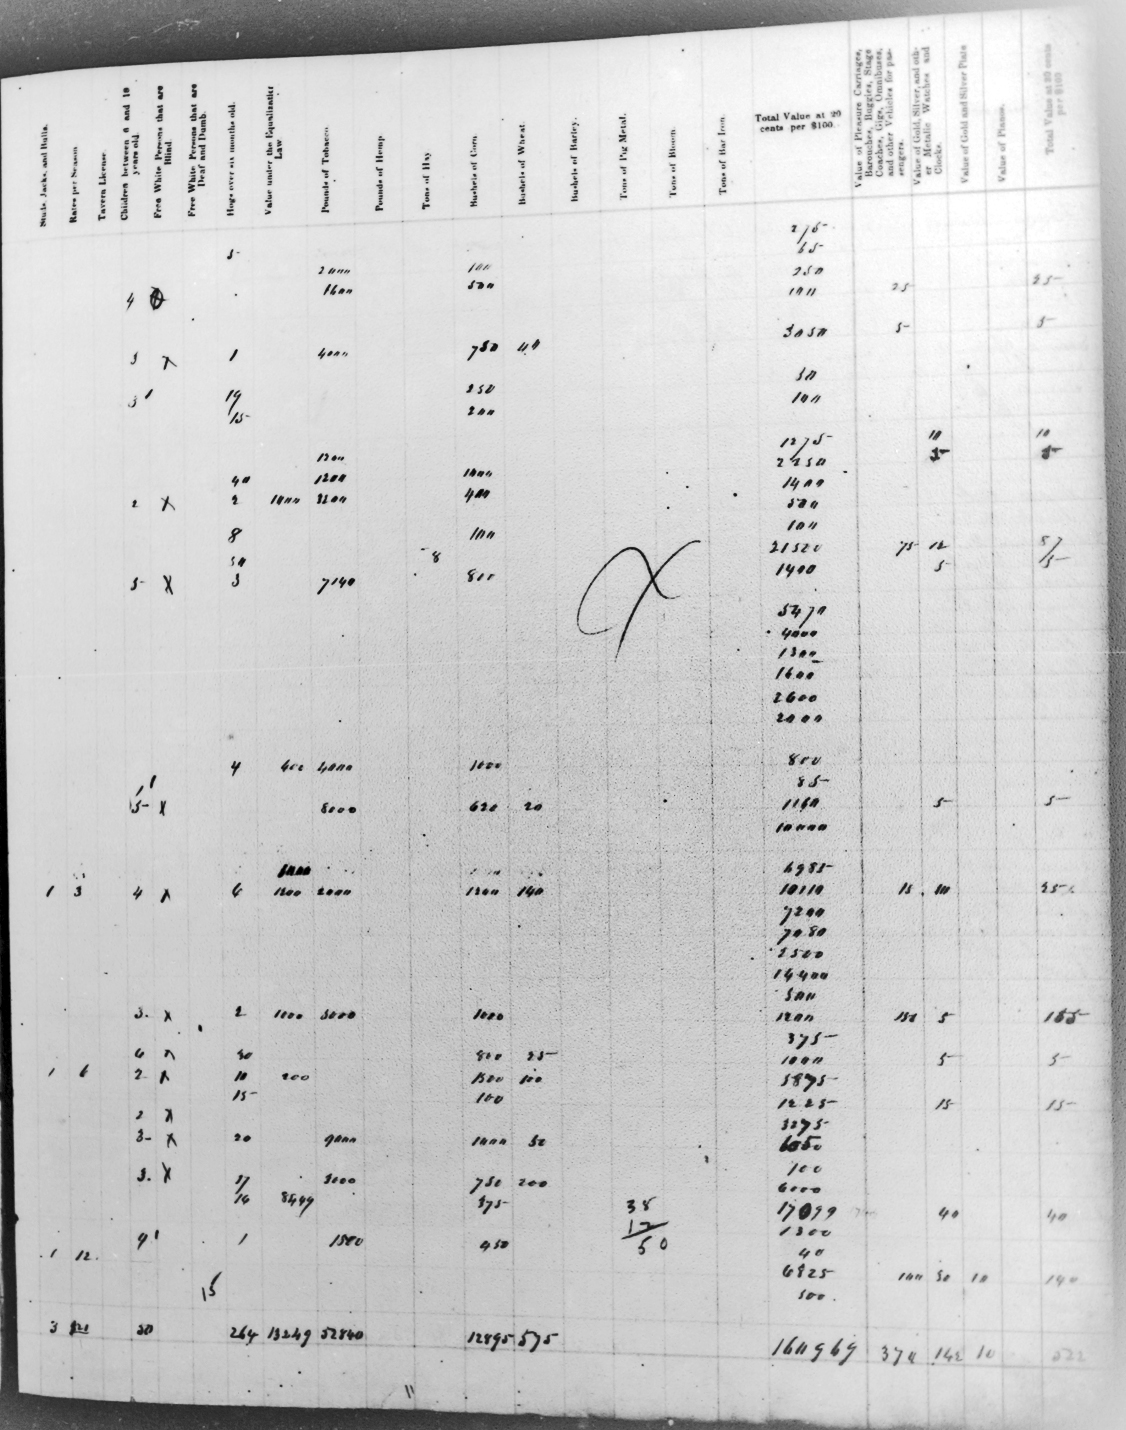 Studs, Jacks, and Bulls.
Rates per Season
Tavern License
Children between 6 and 18 years old.
Free White Persons that are Blind.
Free White Persons that are Deaf and Dumb.
Hogs over six months old.
Value under the Equalization Law
Pounds of Tobacco.
Pounds of Hemp
Tons of Hay
Bushels of Corn.
Bushels of Wheat.
Bushels of Barley.
Tons of Pig Metal.
Tons of Bloom.
Tons of Bar Iron.
Total Value at 20 cents per $100.
Value of Pleasure Carriages, Barouches, Buggies, Stage Coaches, Gigs, Omnibuses, and other Vehicles for passengers.
Value of Gold, Silver, and other Metalic Watches and Clocks.
Value of Gold and Silver Plate
Value of Pianos.
Total Value at 30 cents per $100
275
5 65
2000 100 250
4 1600 500 100 25 25
3050 5 5
3 X 1 4000 750 40
50
3 1 19 250 100
15 200
1275 10 10
1200 2250 5 5
40 1200 1000 1400
2 X 2 1000 3200 400 500
8 100 100
50 8 21520 75 12 87
5 X 3 7140 800 1400 5 5
5470
4000
1300
1600
2600
2000
4 400 4000 1000 800
85
5 X 8000 620 20 1160 5 5
10000
6985
1 3 4 X 6 1200 2000 1200 140 10110 15 10 25
7200
7080
2500
14400
500
3 X 2 1000 3000 1000 1200 150 5 155
375
6 X 30 800 25 1000 5 5
1 6 2 X 10 200 1500 100 5875
15 100 1225 15 15
2 X 3275
3 X 20 9000 1000 50 6050
100
3. X 37 3000 750 200 6000
16 8449 375 38 17099 40 40
12 1300
4 1 1 1500 450 50 40
1 12 6825 100 50 10 140
15 500
3 $21 50 264 13249 52840 12895 575 160969 370 142 10 522
11